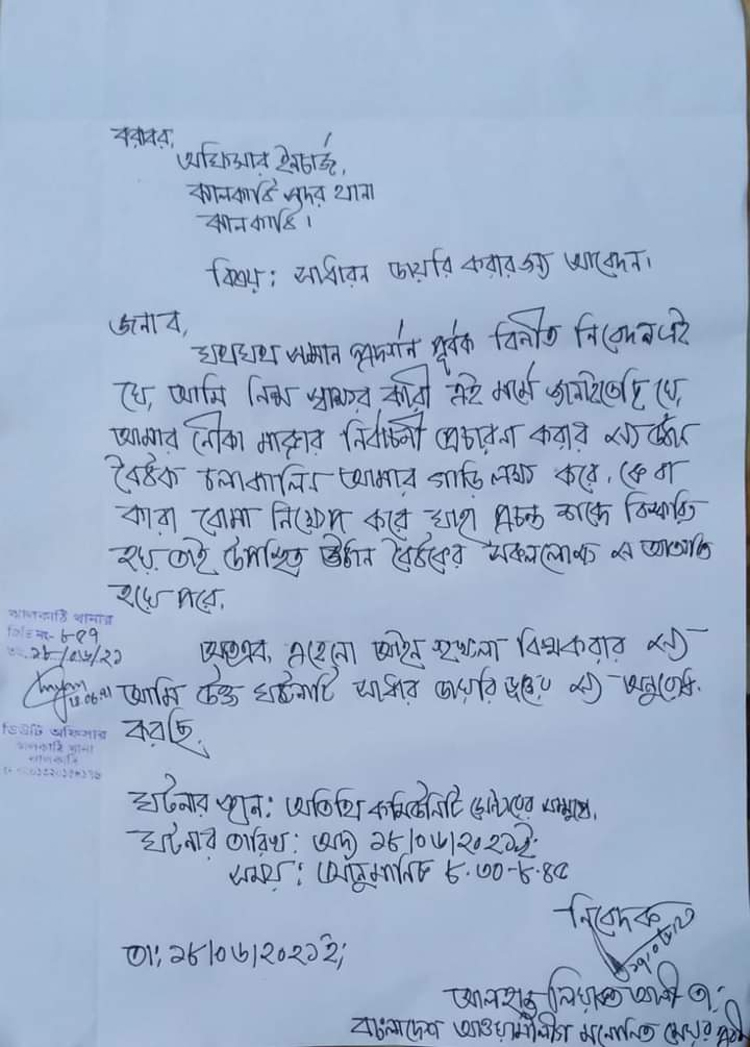 বরাবর,
অফিসার ইনচার্জ,
ঝালকাঠি সদর থানা
ঝালকাঠি।
বিষয়: সাধারন ডায়রি করার জন্য আবেদন।
জনাব,
যথাযথ সম্মান প্রদর্শন পূর্বক বিনীত নিবেদন এই
যে, আমি নিম্ন স্বাক্ষর কারী এই মর্মে জানাইতেছি যে,
আমার নৌকা মার্কার নির্বাচনী প্রচারনা করার জন্য উঠান
বৈঠক চলাকালিন আমার গাড়ি লক্ষ্য করে, কে বা
কারা বোমা নিক্ষেপ করে যাহা প্রচন্ড শব্দে বিস্ফরিত
হয়, তাই উপস্থিত উঠান বৈঠকের সকল লোক জন আতংকিত
হয়ে পরে,
অতএব, এহেনো আইন শৃংখলা বিঘ্ন করার জন্য
আমি উক্ত ঘটনাটি সাধারন ডায়রি ভুক্তের জন্য অনুরোধ
করছি,
ঝালকাঠি থানার
জিডি নং- ৮৫৭
তাং ১৮/০৬/২১
ডিউটি অফিসার
ঝালকাঠি থানা
ঝালকাঠি
ঘটনার স্থান: অতিথি কমিউনিটি সেন্টারের সম্মুখে,
ঘটনার তারিখ: অদ্য ১৮/০৬/২০২১ইং
সময়: আনুমানিক ৮.৩০-৮.৪৫
তা: ১৮/০৬/২০২১ইং;
নিবেদক
আলহাজ্ব লিয়াকত আলী তা:
বাংলাদেশ আওয়ামীলীগ মনোনিত মেয়র প্রার্থী